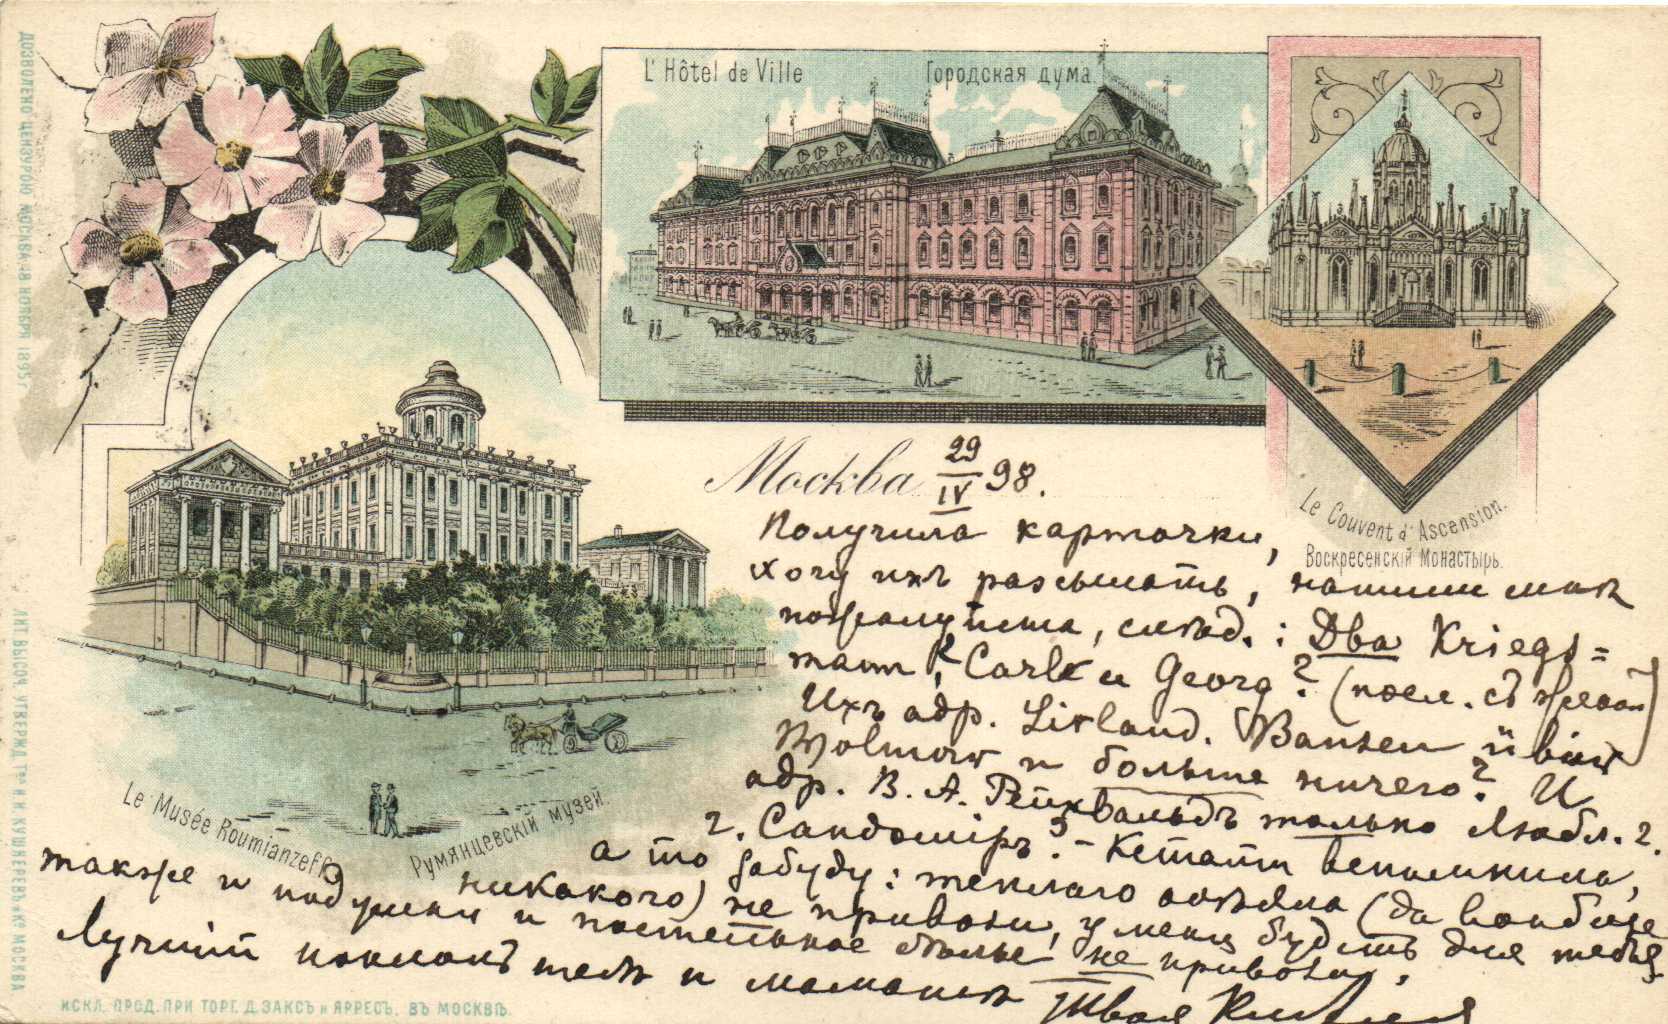 L'Hôtel de Ville
Городская дума.
Le Couvent d'Ascension.
Воскресенскій Монастырь.
Москва 29/IV 98.
Получила карточки,
хочу ихъ разсылать, напиши мнѣ
пожалуйста, слѣд.: Два Kriegs=
Carl и Georg? (посл. съ женой)
Ихъ адр. Livland.
и больше ничего? И
адр. В. А. Рейхвальдъ только Любл. г.
г. Сандоміръ? - Кстати вспомнила,
а то забуду: теплаго одѣяла (да вообще
никакого) не привози, у меня будетъ для тебя,
также и подушки и постельное бѣлье не привози.
Лучшій поклонъ тебѣ и мамашѣ Твоя
Le Musée Roumianzeff.
Румянцевскій музей.
ДОЗВОЛЕНО ЦЕНЗУРОЮ МОСКВА 18 НОЯБРЯ 1895 г.
ЛИТ. ВЫСОЧ. УТВЕРЖД. Т-ва И. Н. КУШНЕРЕВЪ и Ко МОСКВА
ИСКЛ. ПРОД. ПРИ ТОРГ. Д. ЗАКСЪ и ЯРРЕСЪ. ВЪ МОСКВѢ.